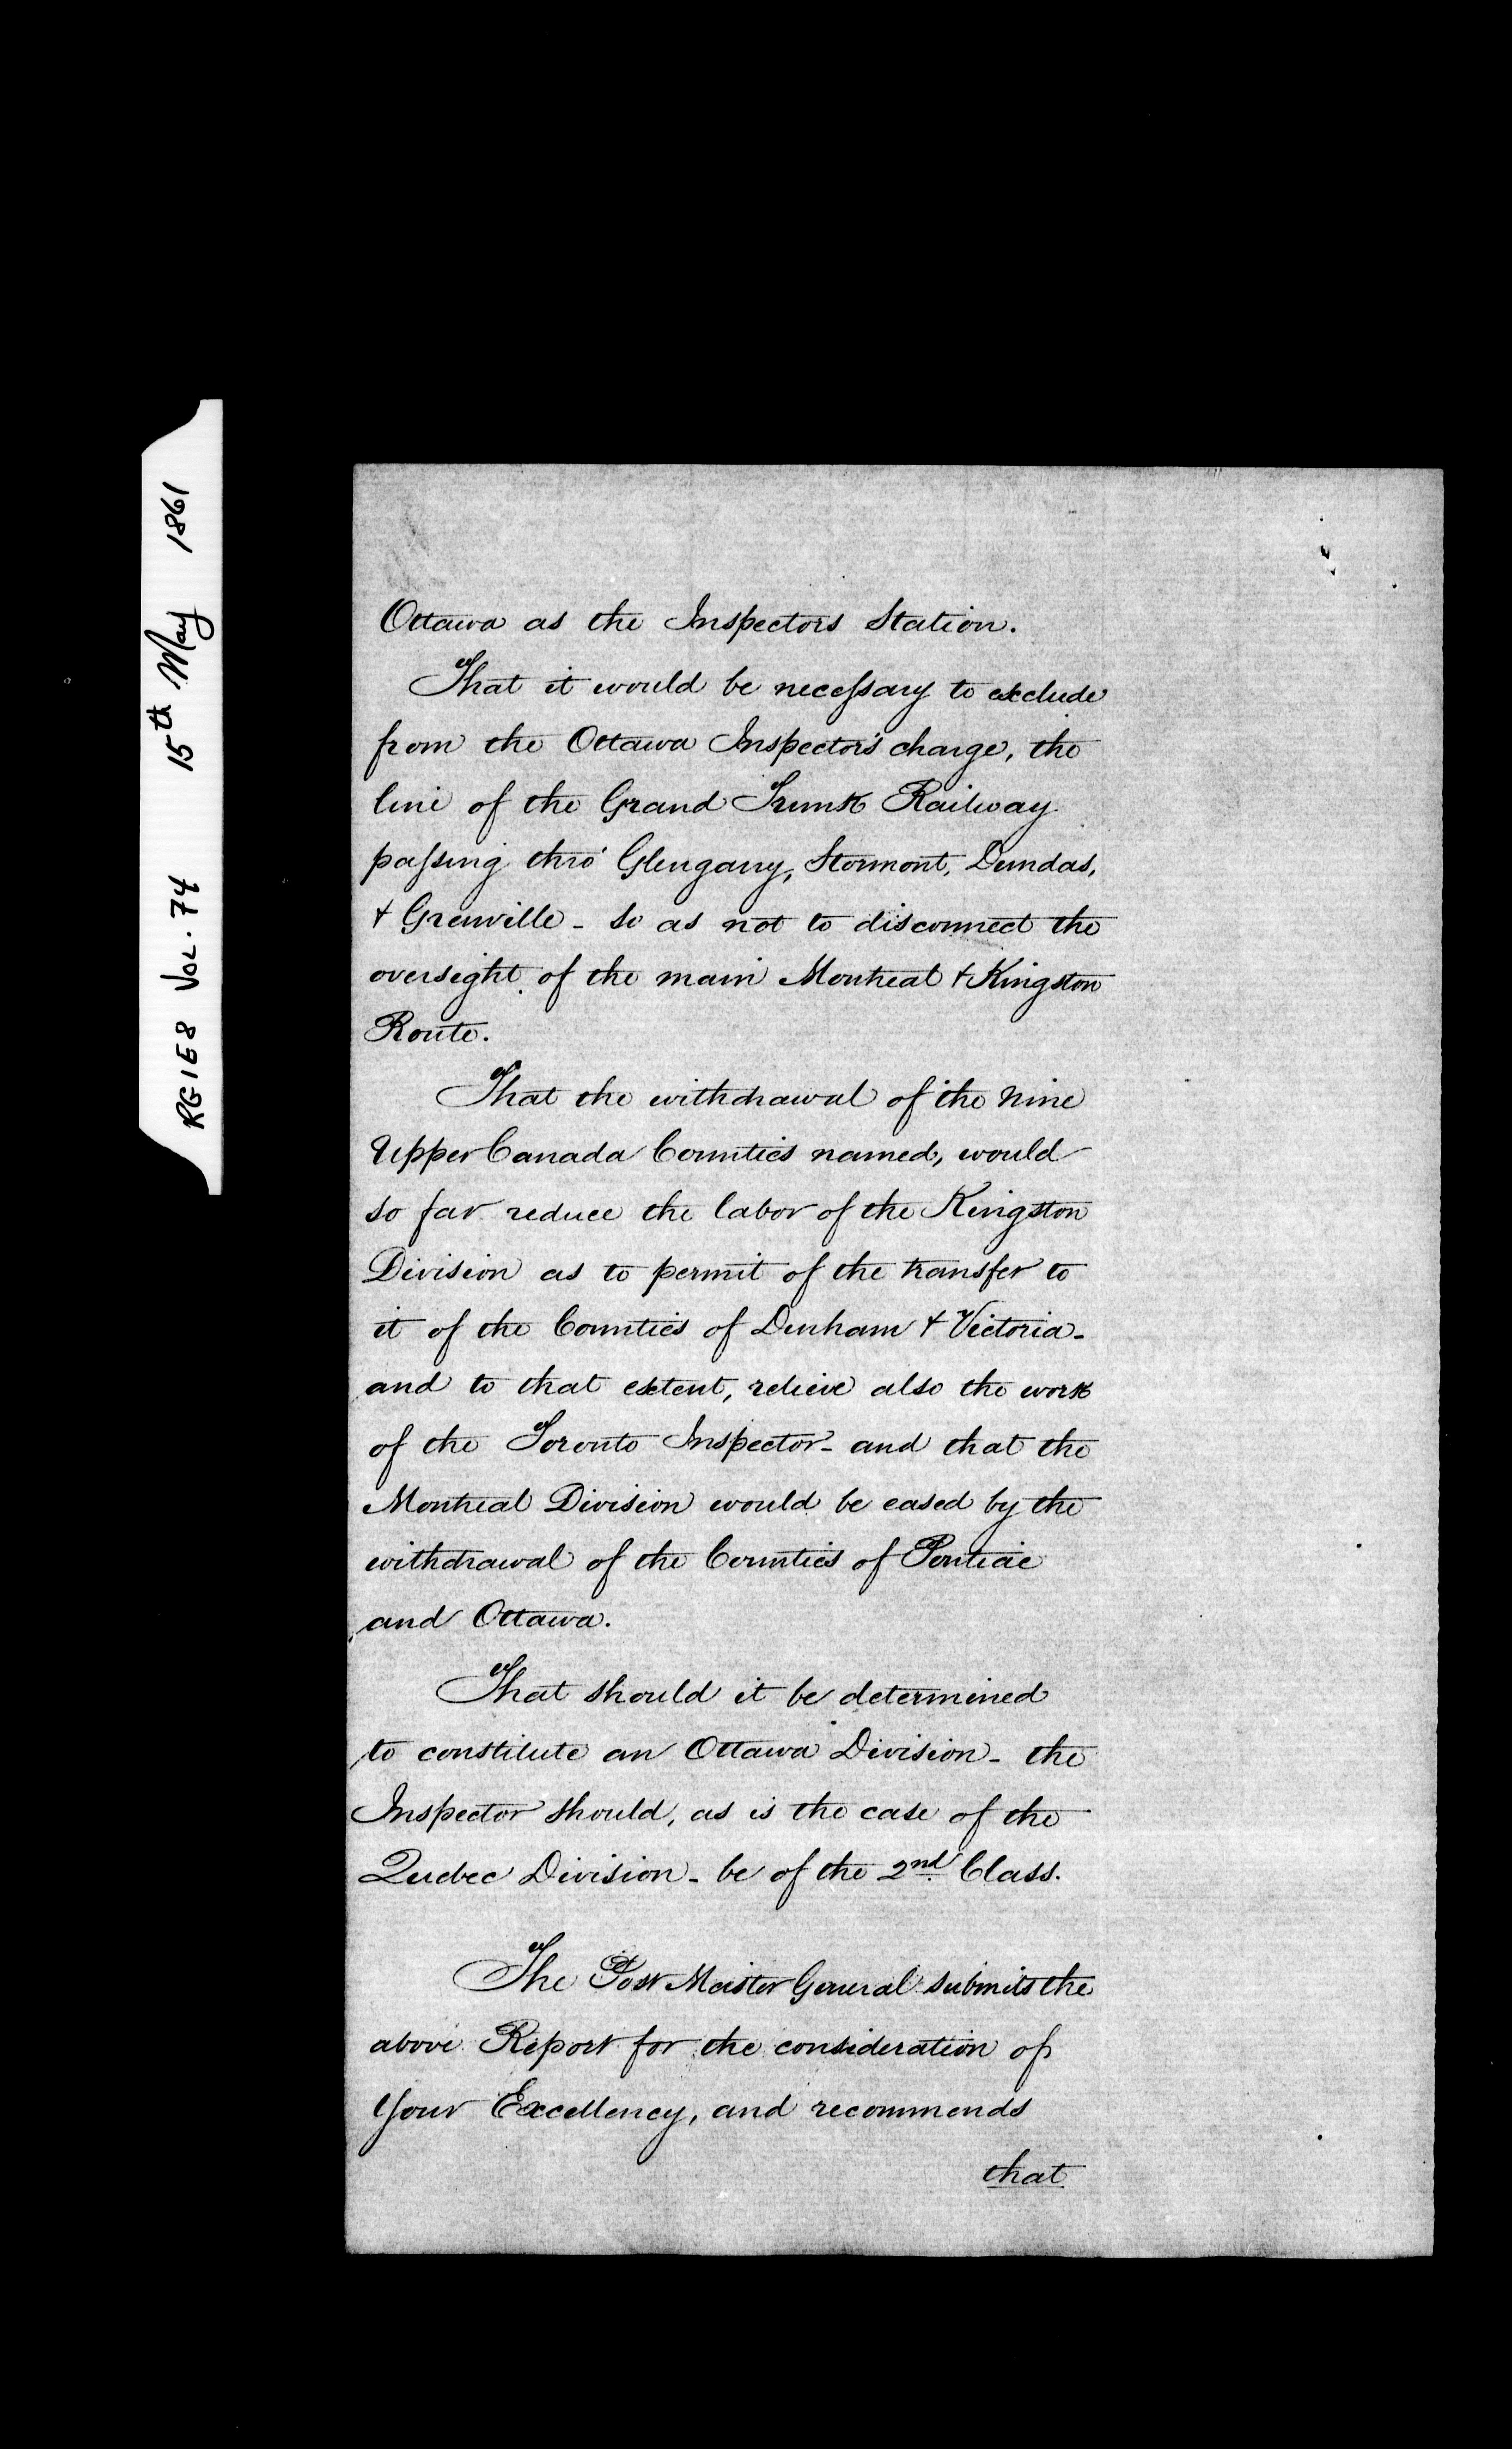 RG1E8 VOL. 74 15th May 1861
Ottawa as the Inspectors Station.
That it would be necessary to exclude
from the Ottawa Inspector's charge, the
line of the Grand Trunk Railway
passing thro' Glengarry, Stormont, Dundas,
& Grenville - so as not to disconnect the
oversight of the main Montreal & Kingston
Route.
That the withdrawal of the nine
Upper Canada Counties named, would
so far reduce the labor of the Kingston
Division as to permit of the transfer to
it of the Counties of Durham & Victoria -
and to that extent, relieve also the work
of the Toronto Inspector - and that the
Montreal Division would be eased by the
withdrawal of the Counties of Pontiac
and Ottawa.
That should it be determined
to constitute an Ottawa Division - the
Inspector should, as is the case of the
Quebec Division - be of the 2nd Class.
The Post Master General submits the
above Report for the consideration of
Your Excellency, and recommends
that